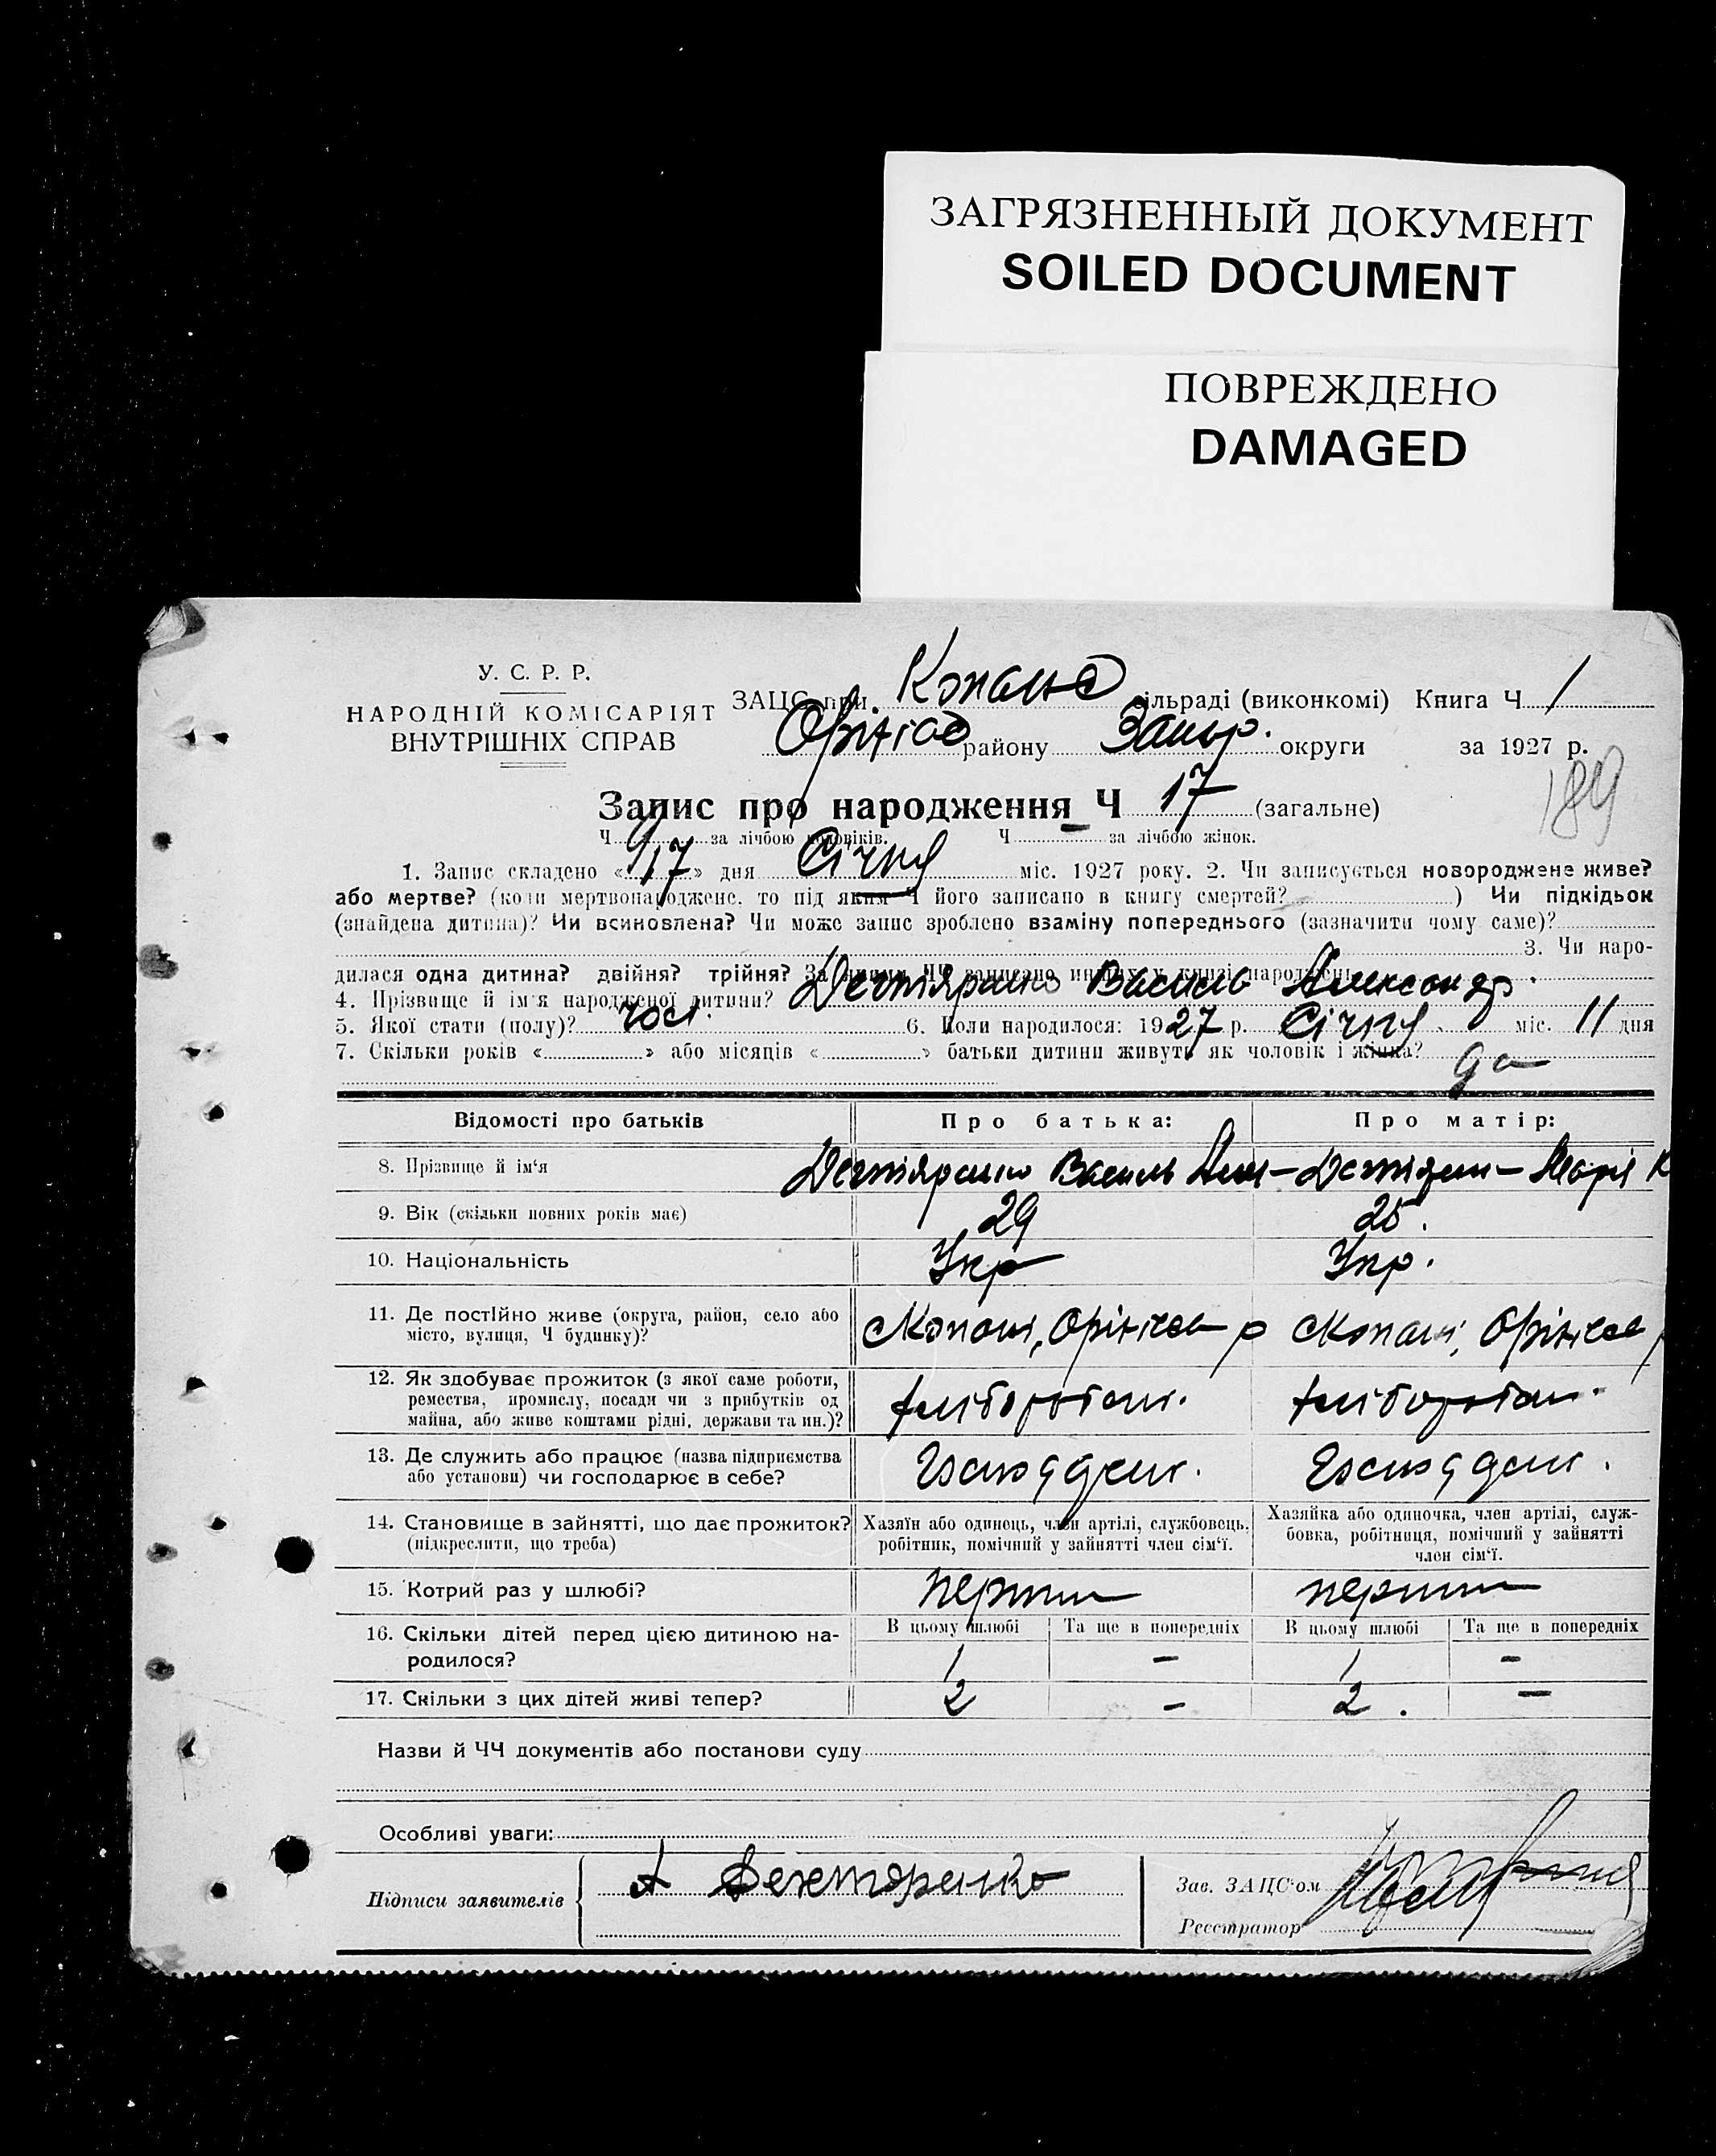 ЗАГРЯЗНЕННЫЙ ДОКУМЕНТ
SOILED DOCUMENT
ПОВРЕЖДЕНО
DAMAGED
У. С. Р. Р.
НАРОДНІЙ КОМІСАРІЯТ
ВНУТРІШНІХ СПРАВ
ЗАЦС при Копанс сільраді (виконкомі) Книга Ч 1
району Запор. округи за 1927 р.
189
Запис про народження Ч 17 (загальне)
Ч за лічбою чоловіків. Ч за лічбою жінок.
1. Запис складено «17» дня Січня міс. 1927 року. 2. Чи записується новороджене живе?
або мертве? (коли мертвонароджене, то під яким Ч його записано в книгу смертей? ) Чи підкідьок
(знайдена дитина)? Чи всиновлена? Чи може запис зроблено взаміну попереднього (зазначити чому саме)?
3. Чи наро-
дилася одна дитина? двійня? трійня? За якими ЧЧ записано инших у книзі народжень
4. Прізвище й ім'я народженої дитини? Дегтяренко Василь Александр.
5. Якої стати (полу)? чол. 6. Коли народилося: 1927 р. Січня міс. 11 дня
7. Скільки років « » або місяців « » батьки дитини живуть як чоловік і жінка? да
Відомості про батьків Про батька: Про матір:
8. Прізвище й ім'я Дегтяренко Василь Дегтярен— Марія К
9. Вік (скільки повних років має) 29 25.
10. Національність Укр Укр.
11. Де постійно живе (округа, район, село або
місто, вулиця, Ч будинку)? Копані, Оріхівсь р Копані, Оріхівсь
12. Як здобуває прожиток (з якої саме роботи,
ремества, промислу, посади чи з прибутків од
майна, або живе коштами рідні, держави та ин.)? хлібороban. хлібороban.
13. Де служить або працює (назва підприємства
або установи) чи господарює в себе?
14. Становище в зайнятті, що дає прожиток?
(підкреслити, що треба)
Хазяїн або одинець, член артілі, службовець,
робітник, помічний у зайнятті член сім'ї.
Хазяйка або одиночка, член артілі, служ-
бовка, робітниця, помічний у зайнятті
член сім'ї.
15. Котрий раз у шлюбі? перши перши
16. Скільки дітей перед цією дитиною на-
родилося?
В цьому шлюбі Та ще в попередніх В цьому шлюбі Та ще в попередніх
1 – 1 –
17. Скільки з цих дітей живі тепер? 2 – 2. –
Назви й ЧЧ документів або постанови суду
Особливі уваги:
Підписи заявителів А Дехторенко
Зав. ЗАЦС'ом
Реєстратор